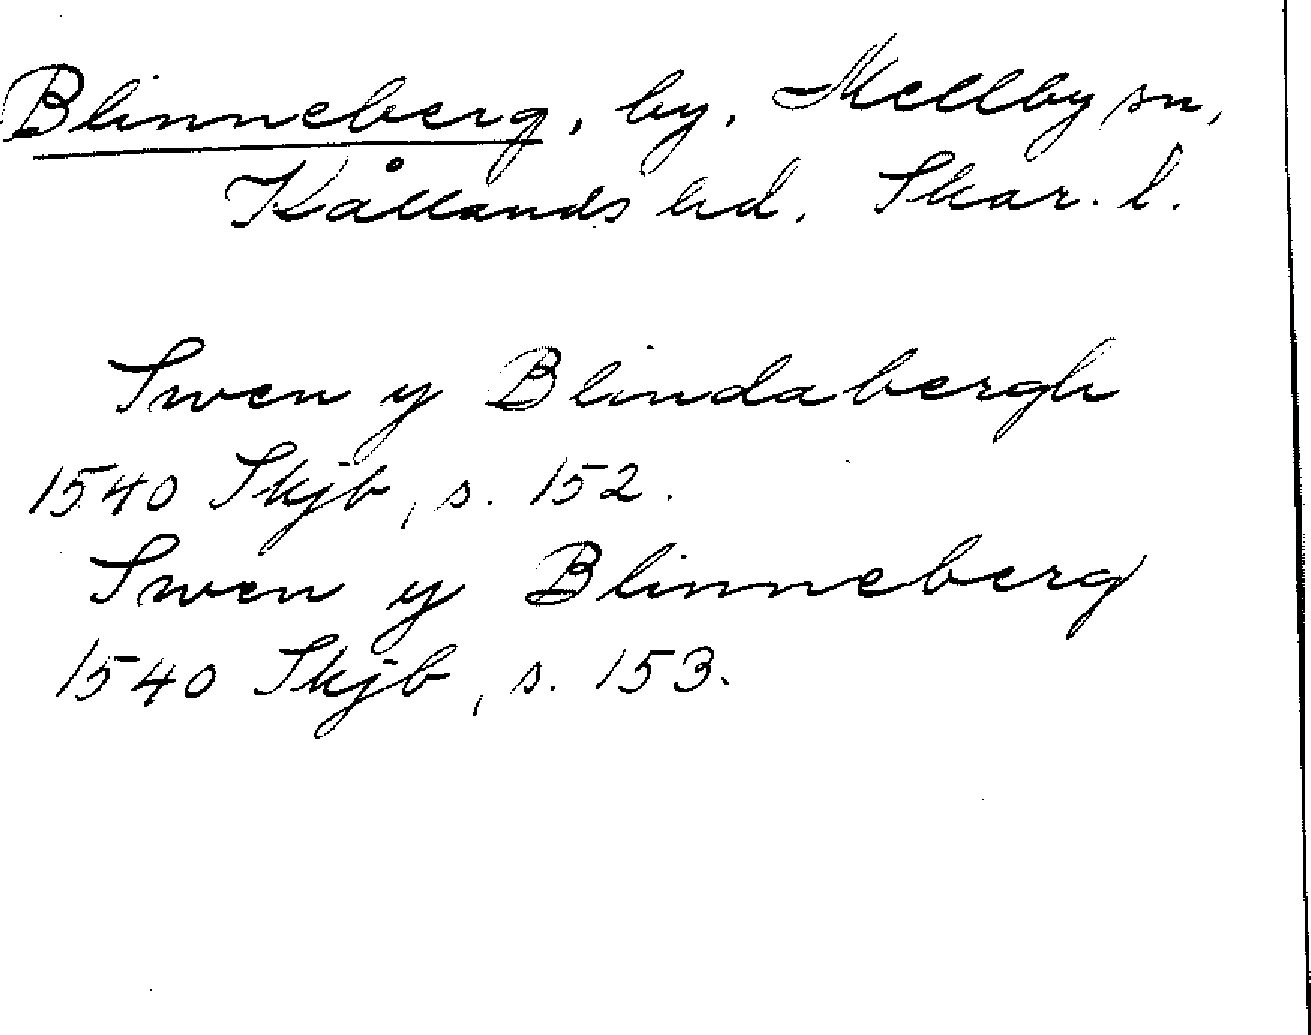 Blinneberg, by, Mellby sn,
Kållands hd. Skar. l.
Swen y Blindabergh
1540 Skjb, s. 152.
Swen y Blinneberg
1540 Skjb, s. 153.